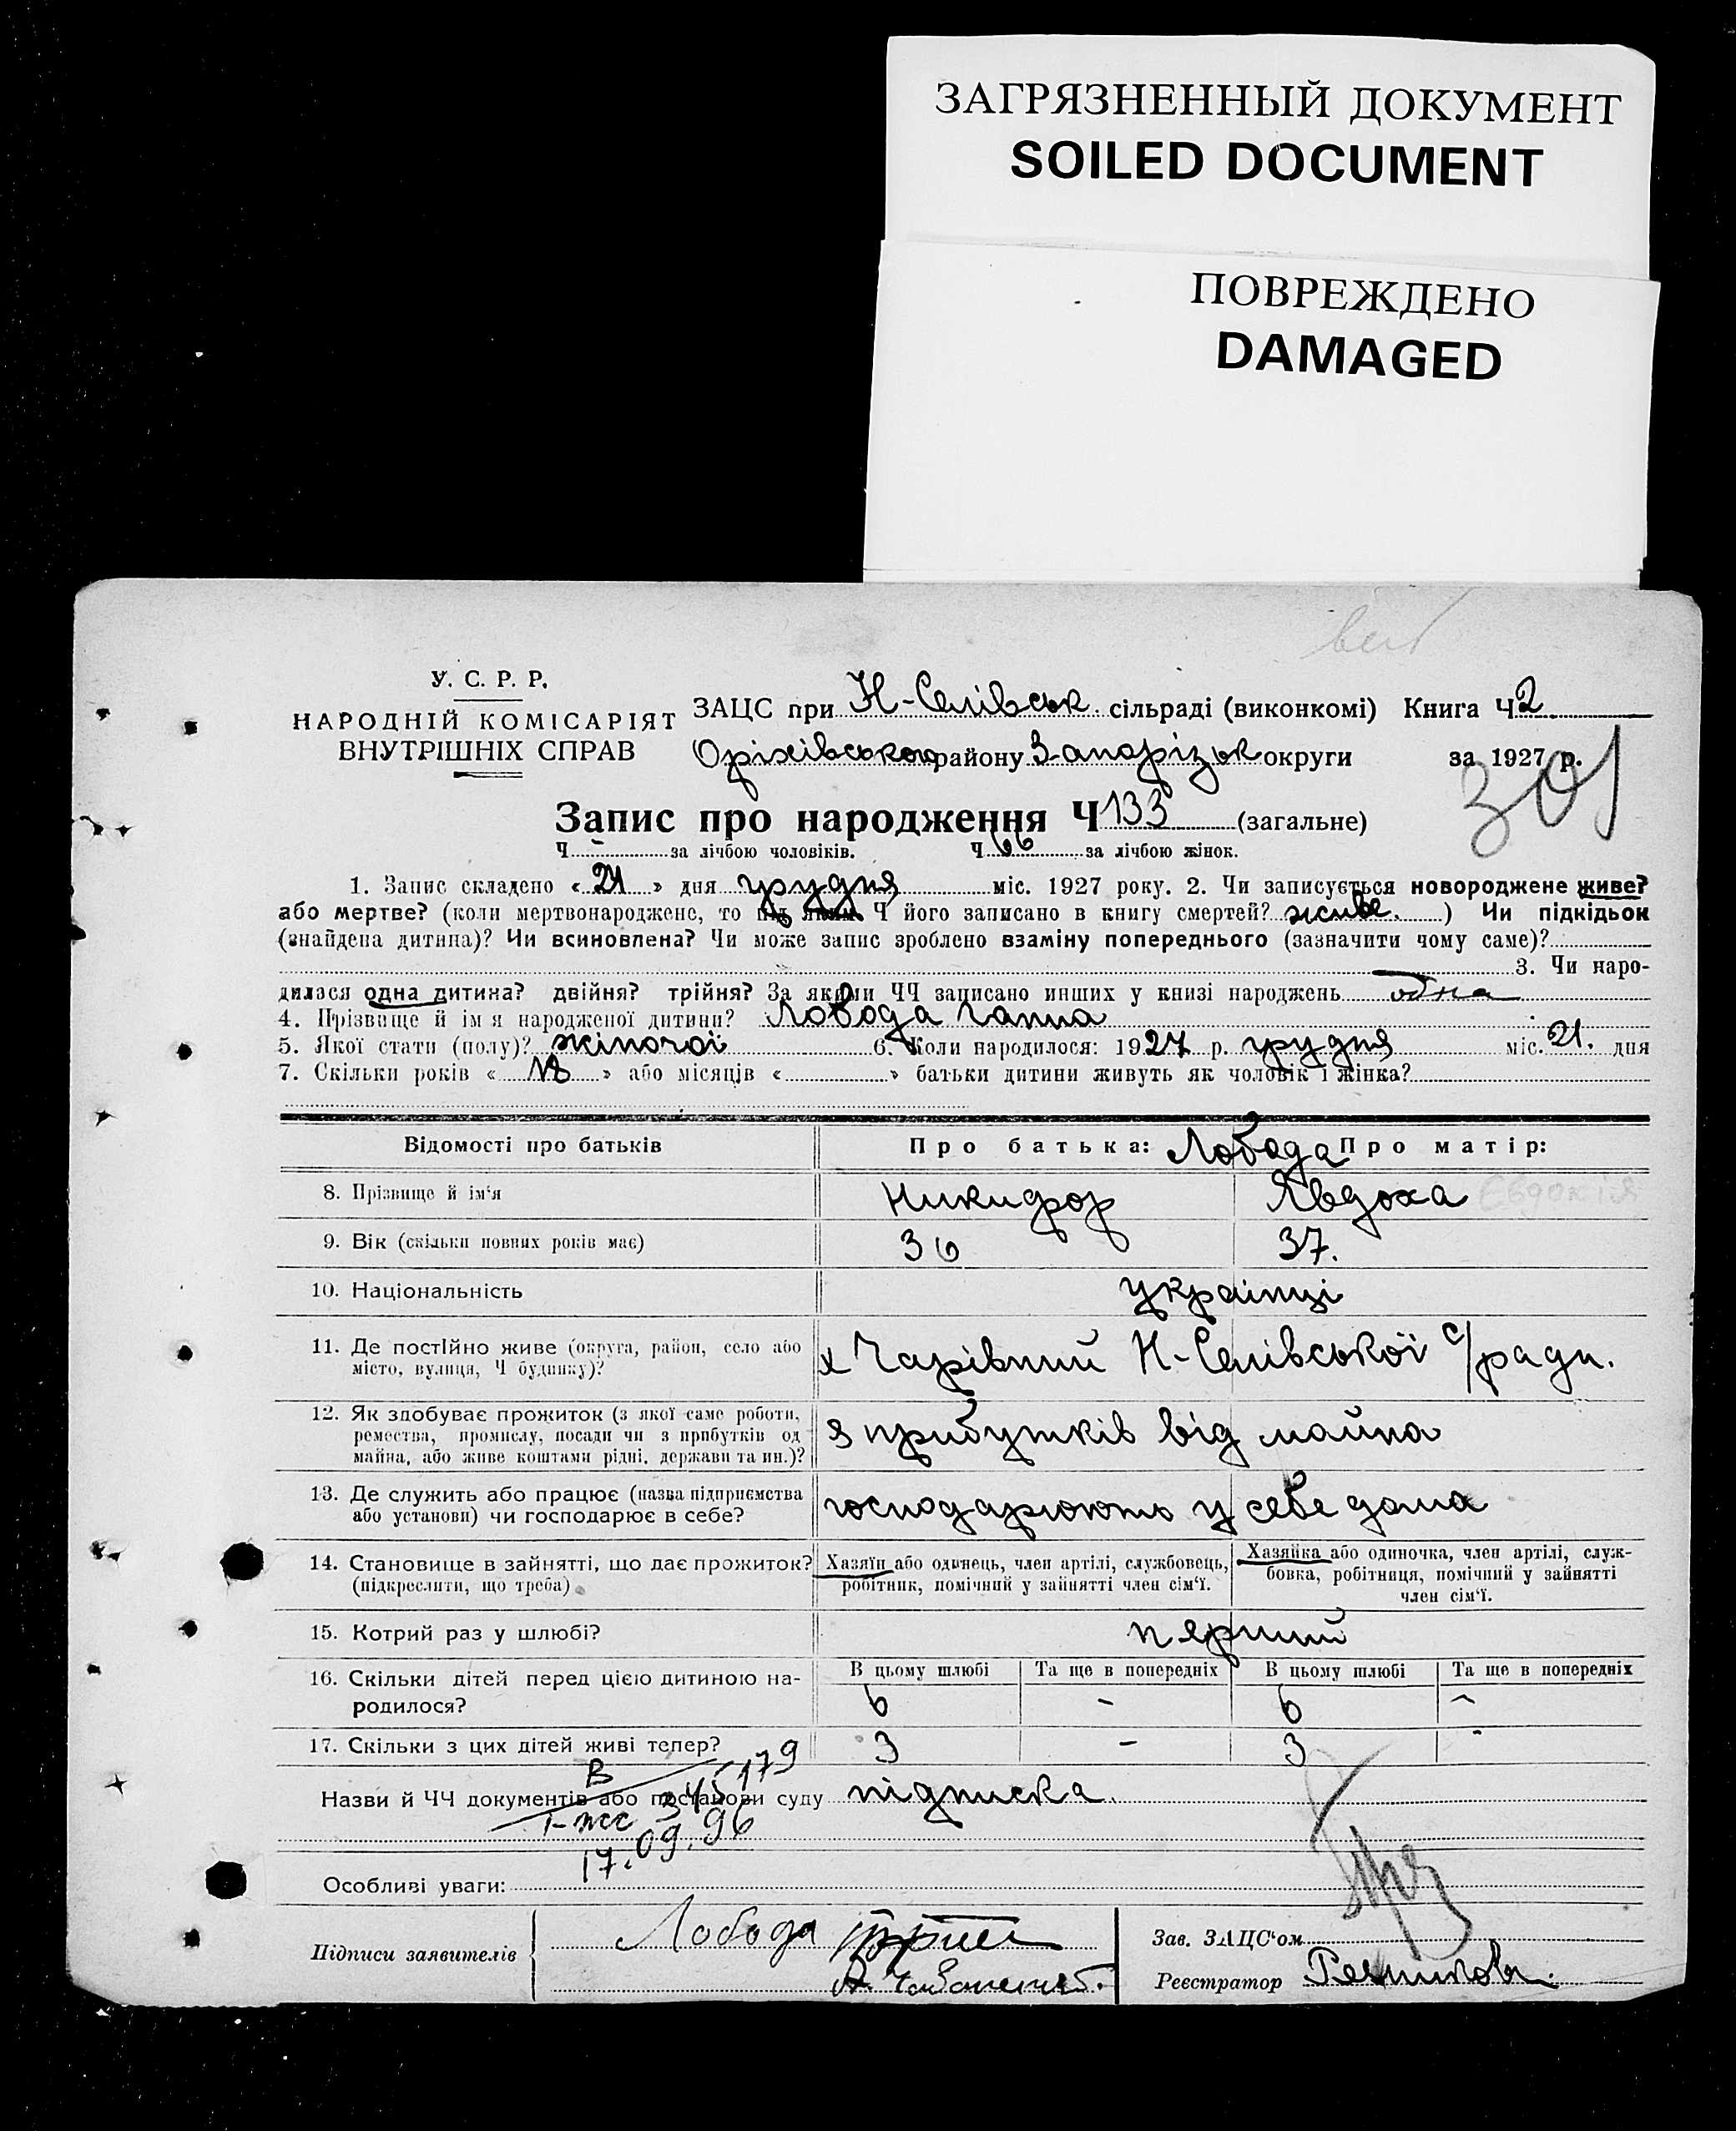 ЗАГРЯЗНЕННЫЙ ДОКУМЕНТ
SOILED DOCUMENT
ПОВРЕЖДЕНО
DAMAGED
У. С. Р. Р.
НАРОДНІЙ КОМІСАРІЯТ
ВНУТРІШНІХ СПРАВ
ЗАЦС при Н-Селівськ. сільраді (виконкомі) Книга Ч 2
Оріхівського району Запорізьк округи за 1927 р.
301
Запис про народження Ч 133 (загальне)
Ч - за лічбою чоловіків. Ч 66 за лічбою жінок.
1. Запис складено « 24 » дня грудня міс. 1927 року. 2. Чи записується новороджене живе?
або мертве? (коли мертвонароджене, то під яким Ч його записано в книгу смертей? живе. ) Чи підкідьок
(знайдена дитина)? Чи всиновлена? Чи може запис зроблено взаміну попереднього (зазначити чому саме)?
3. Чи наро-
дилася одна дитина? двійня? трійня? За якими ЧЧ записано инших у книзі народжень одна
4. Прізвище й ім я народженої дитини? Лобода Ганна
5. Якої стати (полу)? жіночої 6. Коли народилося: 1927 р. грудня міс. 21. дня
7. Скільки років « 18 » або місяців « » батьки дитини живуть як чоловік і жінка?
Відомості про батьків Про батька: Лобода Про матір:
8. Прізвище й ім'я Никифор Явдоха Євдокія
9. Вік (скільки повних років має) 36 37.
10. Національність українці
11. Де постійно живе (округа, район, село або
місто, вулиця, Ч будинку)? х Чарівний Н-Селівської с/ради.
12. Як здобуває прожиток (з якої саме роботи,
ремества, промислу, посади чи з прибутків од
майна, або живе коштами рідні, держави та ин.)? з прибутків від майна
13. Де служить або працює (назва підприємства
або установи) чи господарює в себе? господарюють у себе дома
14. Становище в зайнятті, що дає прожиток?
(підкреслити, що треба)
Хазяїн або одинець, член артілі, службовець,
робітник, помічний у зайнятті член сім'ї.
Хазяйка або одиночка, член артілі, служ-
бовка, робітниця, помічний у зайнятті
член сім'ї.
15. Котрий раз у шлюбі? перший
В цьому шлюбі Та ще в попередніх В цьому шлюбі Та ще в попередніх
16. Скільки дітей перед цією дитиною на-
родилося? 6 - 6 -
17. Скільки з цих дітей живі тепер? 3 - 3 -
Назви й ЧЧ документів або постанови суду підписка.
В
І-жс 345179
17.09.96
Особливі уваги:
Підписи заявителів Лобода
Зав. ЗАЦС'ом
Реєстратор